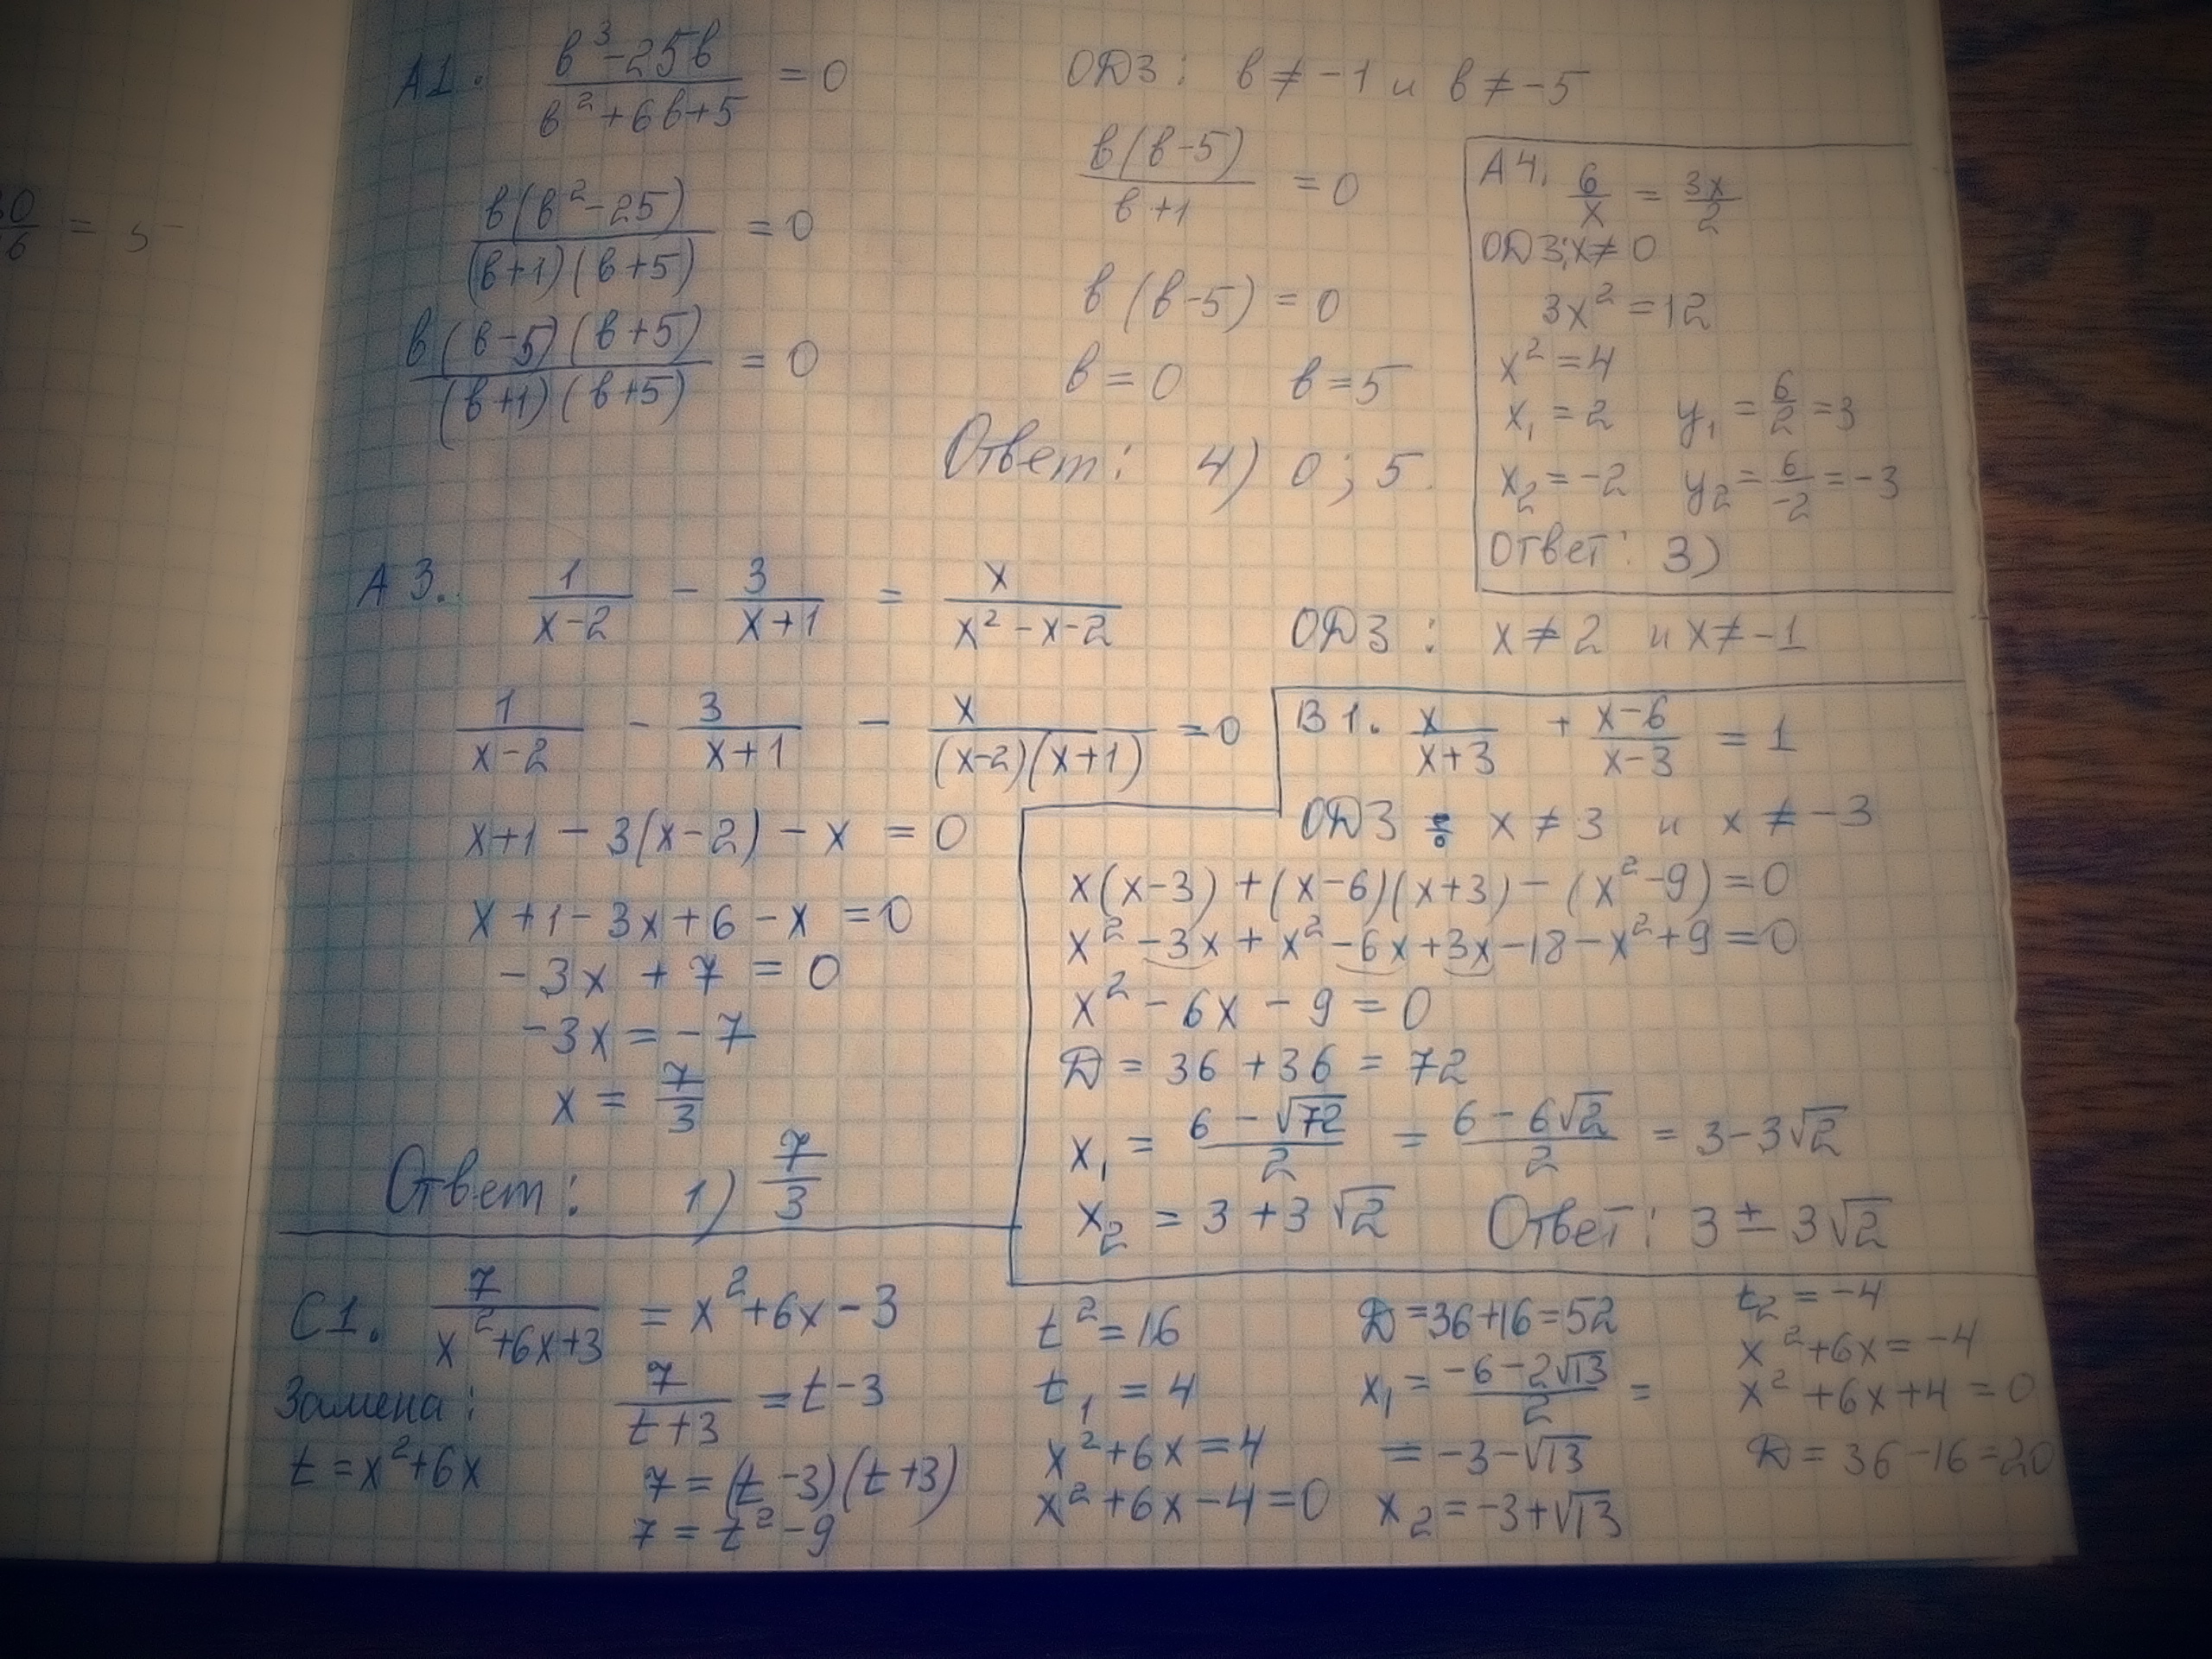 30/6 = 5
A1. (b³-25b)/(b²+6b+5) = 0
ОДЗ: b ≠ -1 и b ≠ -5
b(b²-25)/((b+1)(b+5)) = 0
b(b-5)(b+5)/((b+1)(b+5)) = 0
b(b-5)/(b+1) = 0
b(b-5) = 0
b = 0 b = 5
Ответ: 4) 0; 5.
A4. 6/x = 3x/2
ОДЗ: x ≠ 0
3x² = 12
x² = 4
x₁ = 2 y₁ = 6/2 = 3
x₂ = -2 y₂ = 6/-2 = -3
Ответ: 3)
A3. 1/(x-2) - 3/(x+1) = x/(x²-x-2)
ОДЗ: x ≠ 2 и x ≠ -1
1/(x-2) - 3/(x+1) - x/((x-2)(x+1)) = 0
x+1 - 3(x-2) - x = 0
x+1-3x+6-x = 0
-3x + 7 = 0
-3x = -7
x = 7/3
Ответ: 1) 7/3
B1. x/(x+3) + (x-6)/(x-3) = 1
ОДЗ: x ≠ 3 и x ≠ -3
x(x-3) + (x-6)(x+3) - (x²-9) = 0
x²-3x + x²-6x+3x-18-x²+9 = 0
x² - 6x - 9 = 0
D = 36 + 36 = 72
x₁ = (6-√72)/2 = (6-6√2)/2 = 3-3√2
x₂ = 3+3√2 Ответ: 3 ± 3√2
C1. 7/(x²+6x+3) = x²+6x-3
Замена:
t = x²+6x
7/(t+3) = t-3
7 = (t-3)(t+3)
7 = t²-9
t² = 16
t₁ = 4
x²+6x = 4
x²+6x-4 = 0
D = 36+16 = 52
x₁ = (-6-2√13)/2 =
= -3-√13
x₂ = -3+√13
t₂ = -4
x²+6x = -4
x²+6x+4 = 0
D = 36-16 = 20